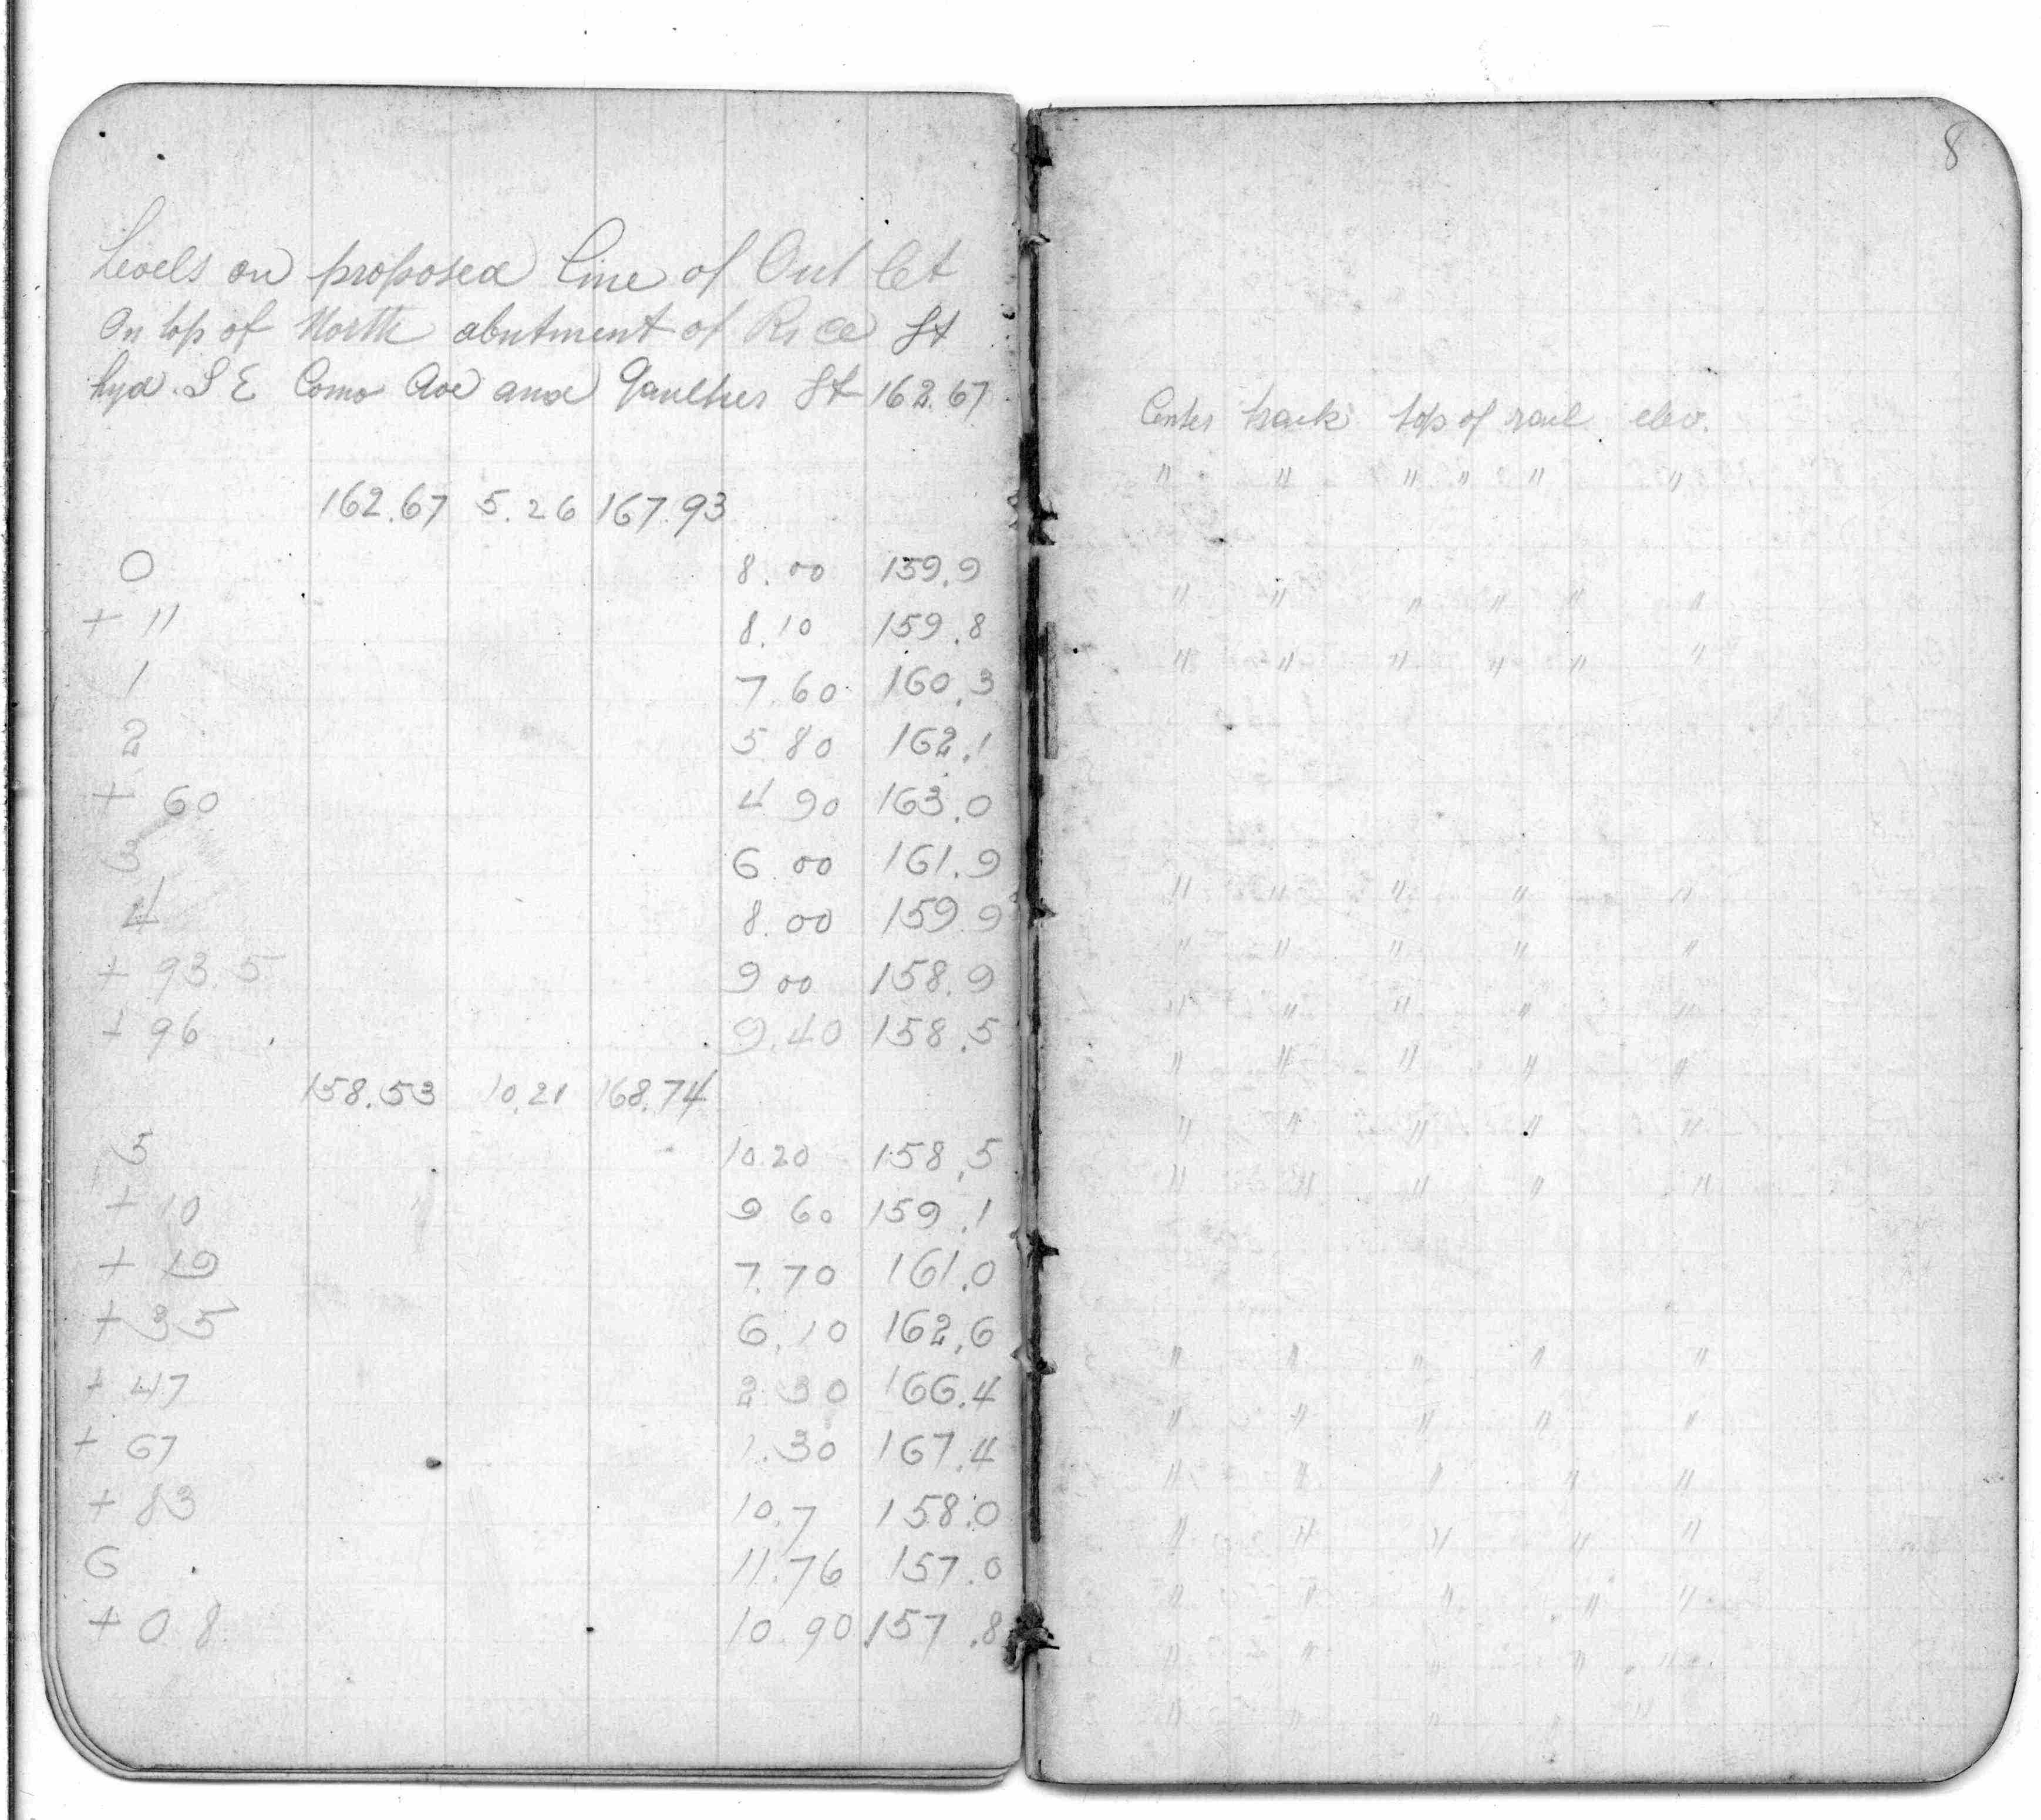 Levels on proposed Line of Out let
On top of North abutment of Rice St
hyd. S E Como Ave and Gaultier St 162.67
162.67 5.26 167.93
0 8.00 159.9
+ 11 8.10 159.8
1 7.60 160.3
2 5 80 162.1
+ 60 4 90 163.0
3 6 00 161.9
4 8.00 159.9
+ 93.5 9 00 158.9
+ 96 9.40 158.5
158.53 10.21 168.74
5 10.20 158.5
+ 10 9 60 159.1
+ 19 7.70 161.0
+ 35 6.10 162.6
+ 47 2.30 166.4
+ 67 1.30 167.4
+ 83 10.7 158.0
6 11.76 157.0
+ 0 8 10.90 157.8
8
Center track top of rail elev.
" " " " " "
" " " " " "
" " " " " "
" " " " "
" " " " "
" " " " "
" " " " "
" " " " "
" " " " "
" " " " "
" " " " "
" " " " "
" " " " "
" " " " "
" " " " "
" " " " "